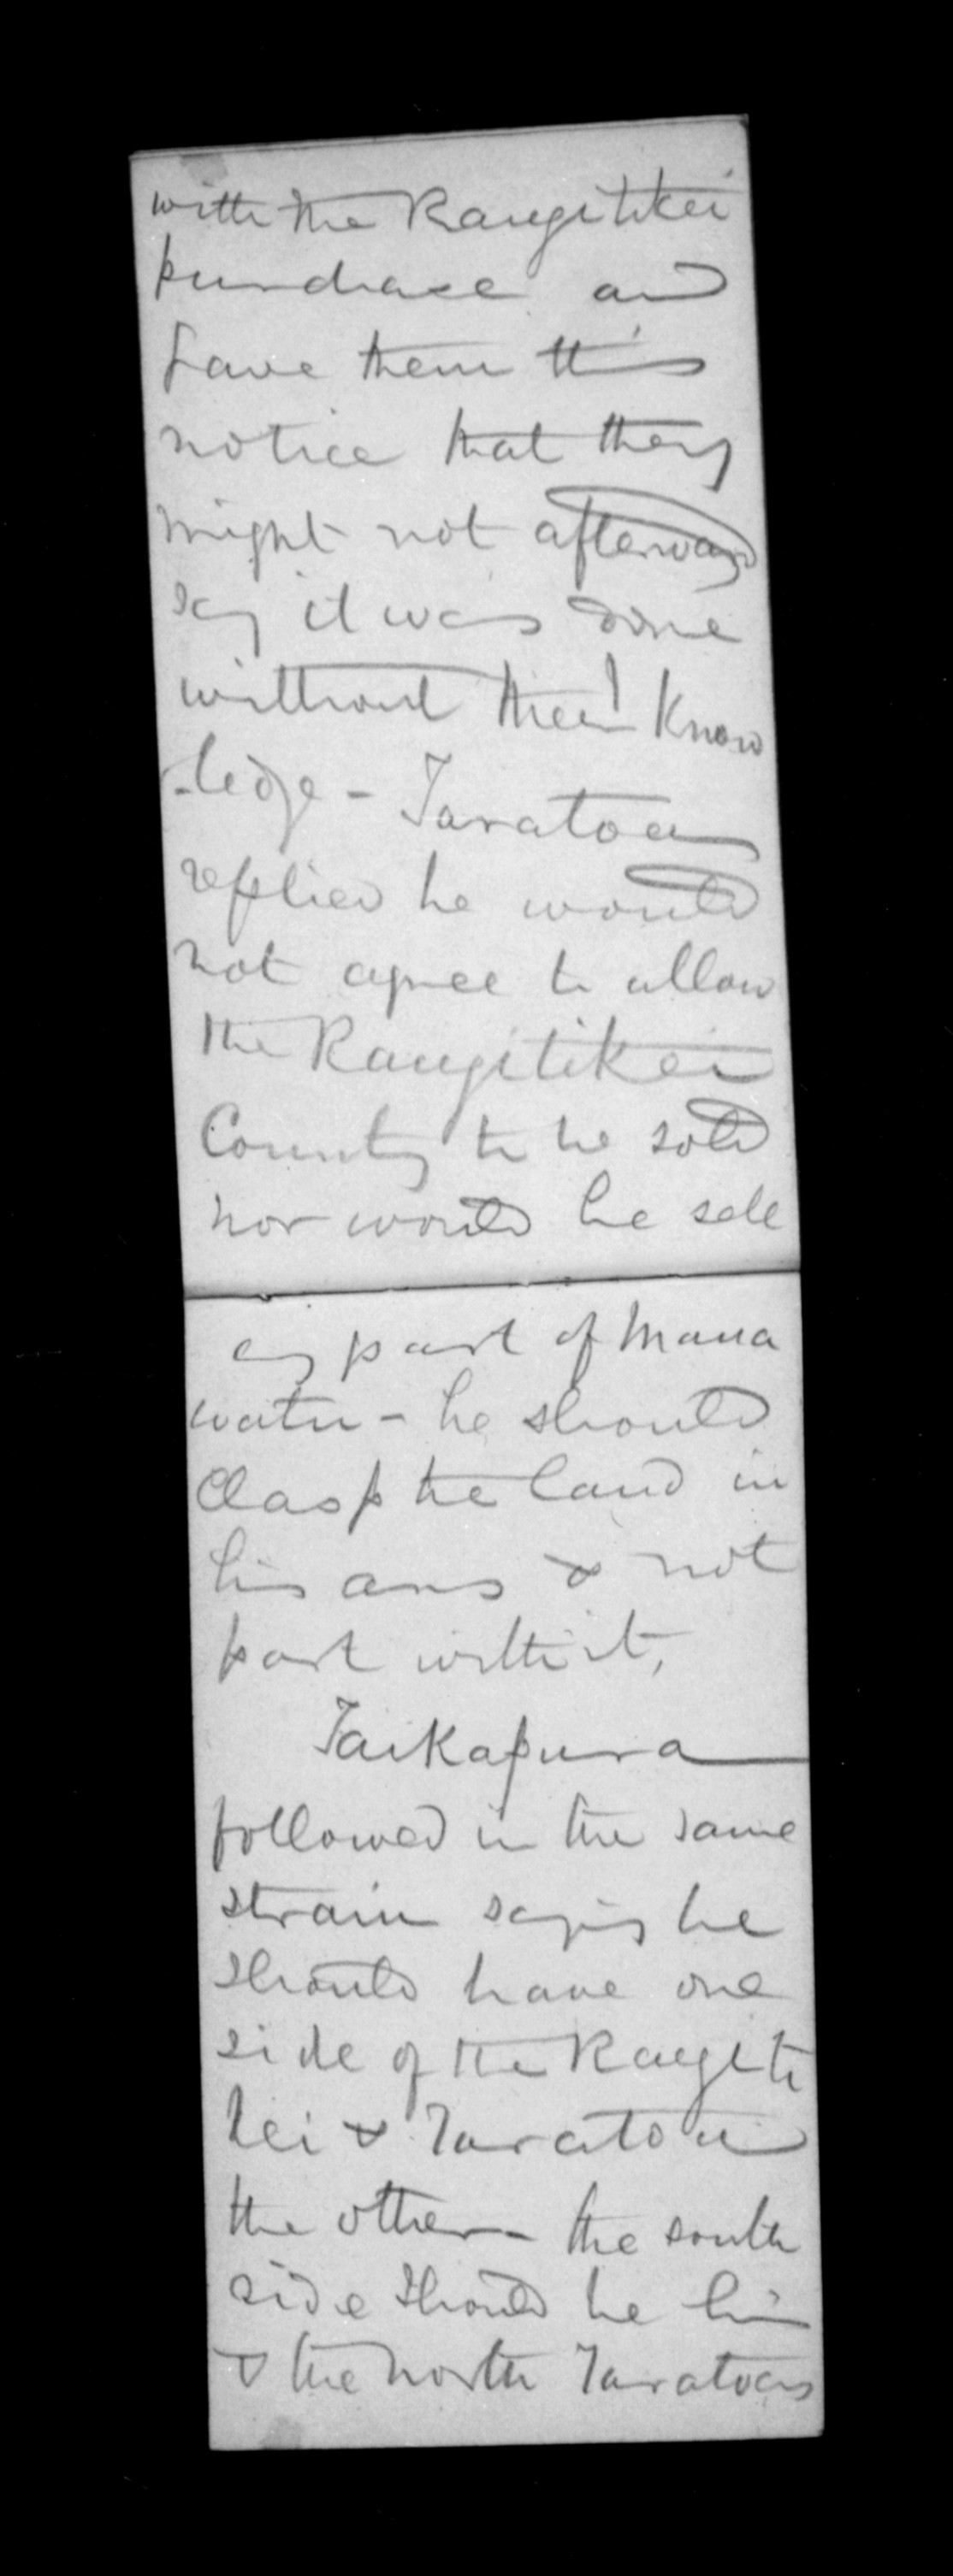 with the Rangitikei
purchase and
gave them this
notice that they
might not afterwards
say it was done
without their Know
-ledge - Taratoa
replied he would
not agree to allow
the Rangitikei
Country to be sold
nor would he sell
any part of Mana
watu - he should
Clasp the land in
his arms & not
part with it,
Taikapura
followed in the same
strain saying he
should have one
side of the Rangiti
kei & Taratoa
the other - the south
side should be his
& the north Taratoas